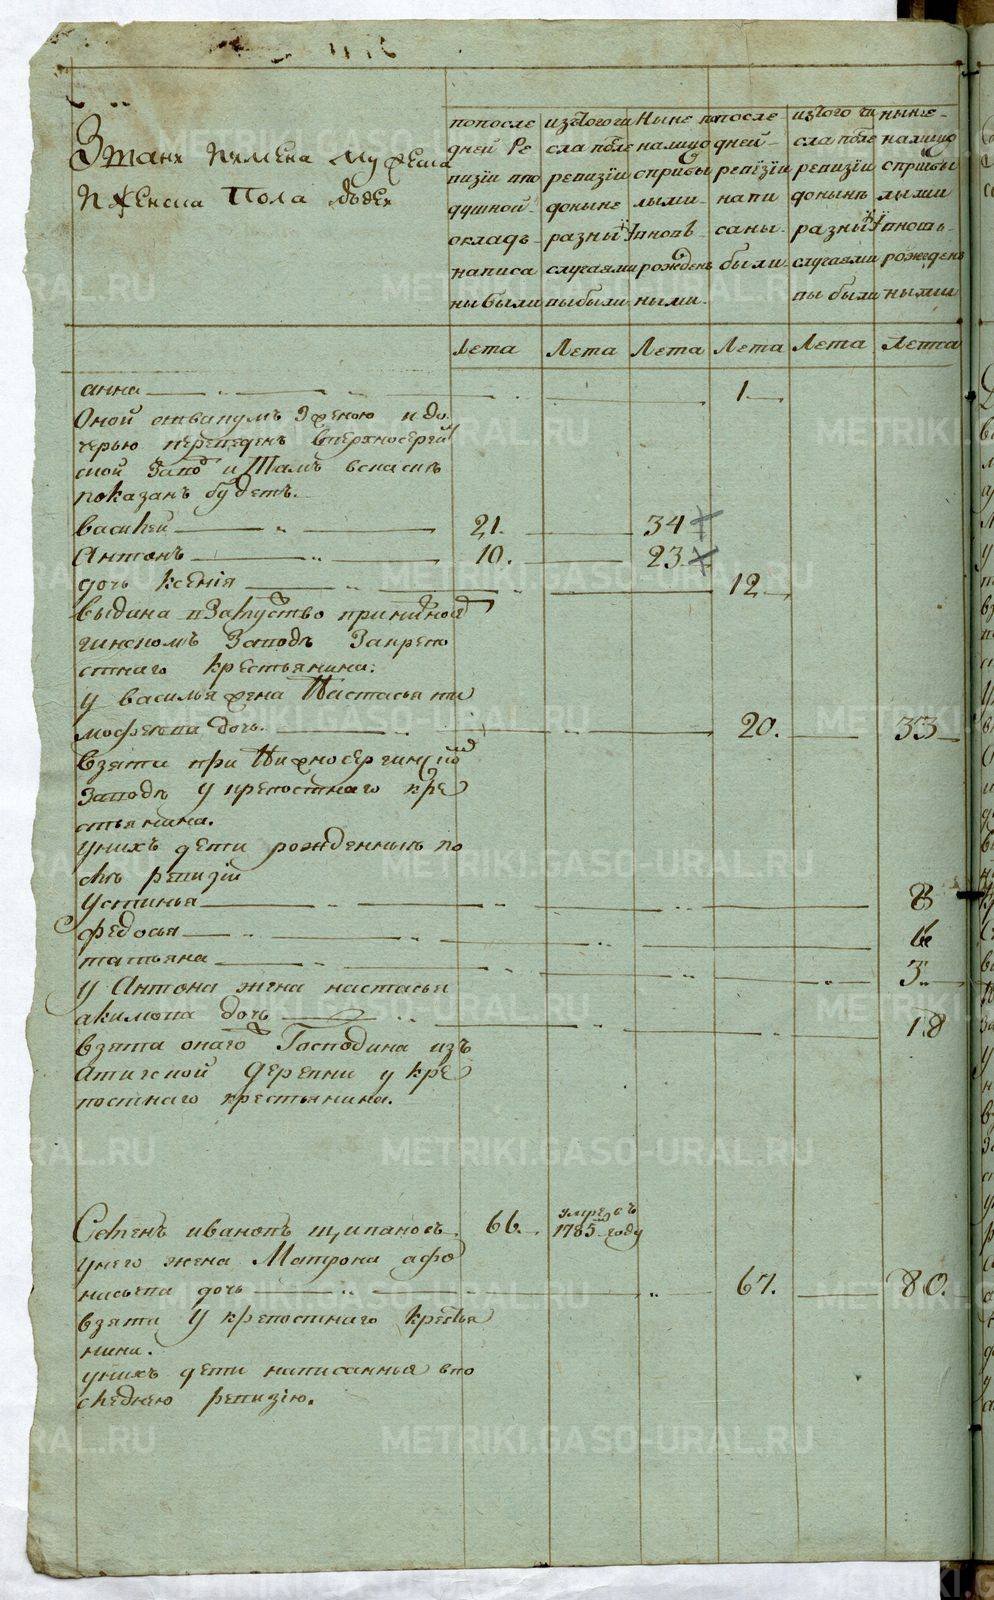 Званія и имена мужеска
и женска пола людей
попосле
дней ре
визіи впо
душной
окладъ
написа
ны были
изътого чи
сла после
ревизіи
доныне
разны
случаями
выбыли
Ныне
налицо
сприбы
лыми
и вновь
рожден
ными
попосле
дней
ревизіи
напи
саны
были
изътого чи
сла после
ревизіи
доныне
разны
случаями
выбыли
ныне
налицо
сприбы
лыми
и вновь
рожден
ными
Лета Лета Лета Лета Лета Лета
анна 1
Оной отваномъ зженою и до
черью переведен вверхносергей
ской заво и тамъ вскаске
показанъ будетъ.
василей 21. 34
Антонъ 10. 23
дочь ксенія 12
выдана взамужство при
гинскомъ заводъ закрепо
стнаго крестьянина.
у василья жена Настасья ти
мофеева дочь. 20. 33
взята при Нижносергинском
заводе у крепостнаго кре
стьянина.
унихъ дети рожденныя по
сле ревизіи
устинья 8
федосья 6
татьяна 3
у Антона жена настасья
акимова дочь 18
взята онаго Господина изъ
Атигской деревни у кре
постнаго крестьянина.
Степенъ ивановъ щипановъ. 66. умре въ
1785 году
унего жена Матрона афо
насьева дочь 67. 80.
взята у крепостнаго крестья
нина.
унихъ дети написанныя впо
следнею ревизію.
METRIKI.GASO-URAL.RU